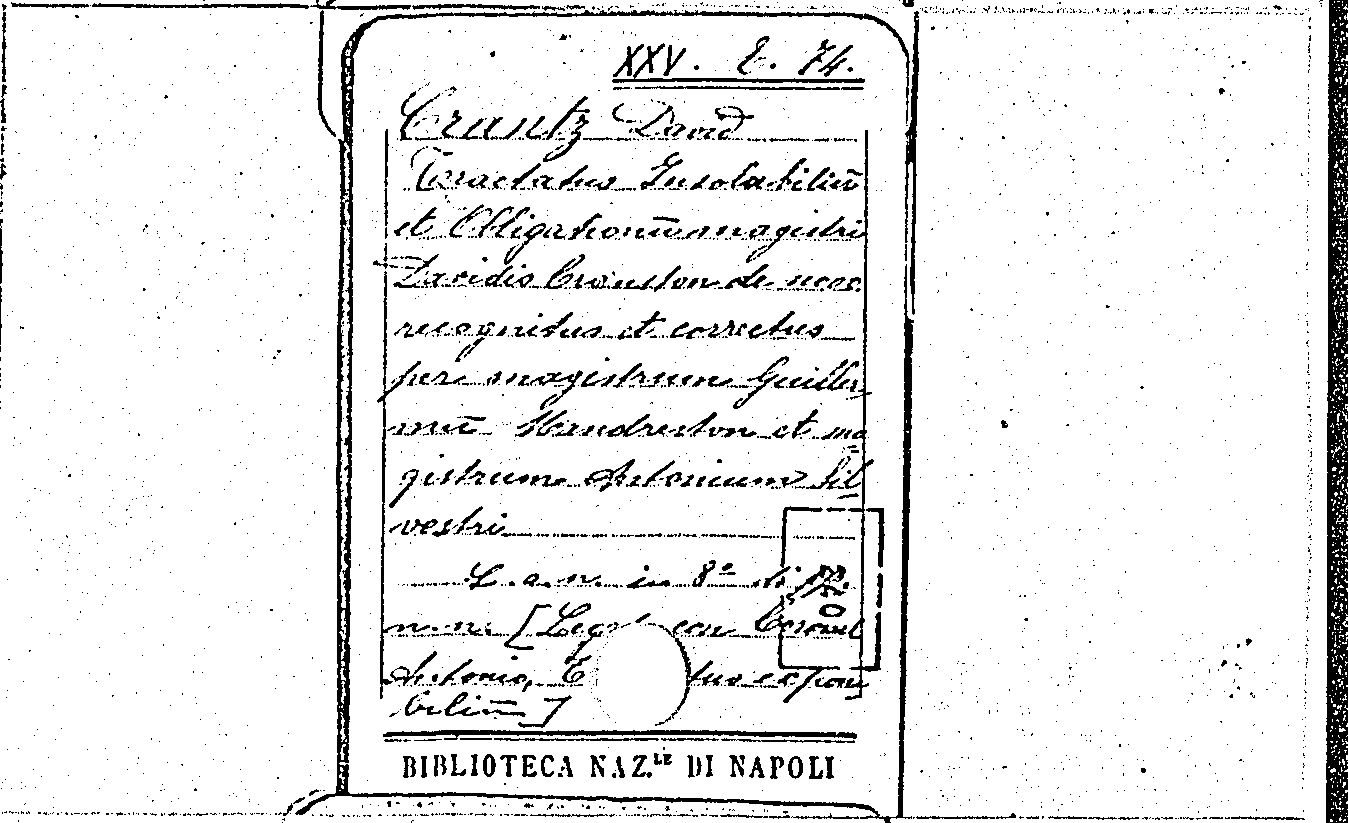 XXV. E. 74.
Crantz David
Tractatus Insolubiliū
et Obligationū magistri
Davidis Cranston de novo
recognitus et correctus
per magistrum Guiller
mū Mandreston et ma
gistrum Antonium Sil
vestri
S. a. n. in 8º di
n. n. [Legato con Coronel
Antonio, tus expon
biliū]
BIBLIOTECA NAZ.LE DI NAPOLI